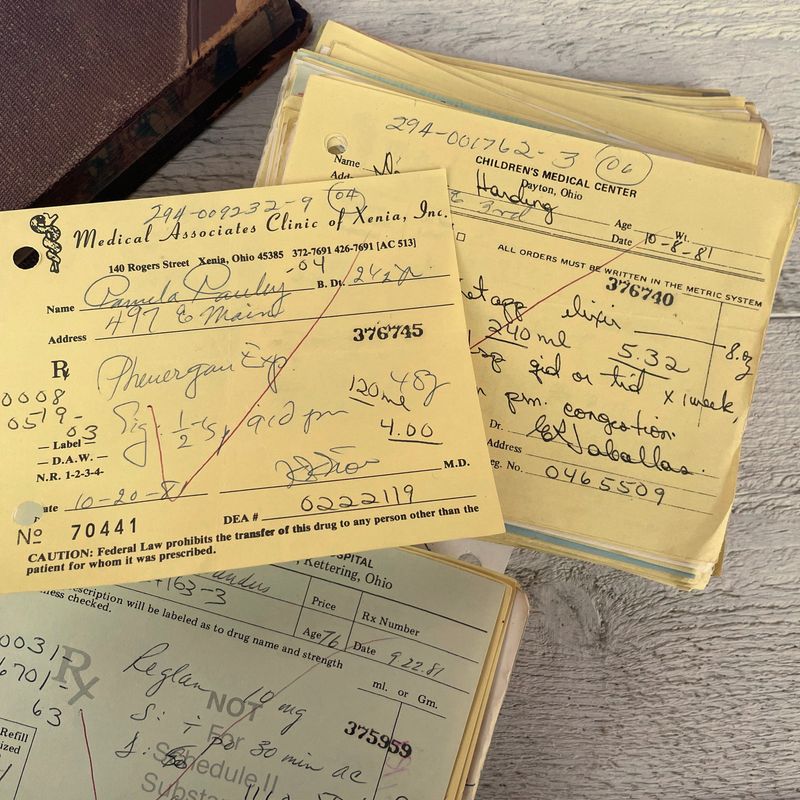 294-001762-3 06
CHILDREN'S MEDICAL CENTER
Dayton, Ohio
Name
Harding
Add
3rd
Age Wt.
Date 10-8-81
ALL ORDERS MUST BE WRITTEN IN THE METRIC SYSTEM
376740
etapp elixir 8.oz
240 ml 5.32
qid or tid x 1 week,
prn. congestion
Dr.
Address
eg. No. 0465509
294-009232-9 04
Medical Associates Clinic of Xenia, Inc.
140 Rogers Street Xenia, Ohio 45385 372-7691 426-7691 [AC 513]
-04
Name Pamela B. Dt.
Address 497 E Main
376745
Rx Phenergan Exp.
0008 120 ml 4 oz
0519- Sig: 1/2
03 4.00
— Label —
— D.A.W. —
N.R. 1-2-3-4-
M.D.
ate 10-20-81
No 70441 DEA # 0222119
CAUTION: Federal Law prohibits the transfer of this drug to any person other than the
patient for whom it was prescribed.
SPITAL
Kettering, Ohio
163-3
escription will be labeled as to drug name and strength
ness checked.
Price Rx Number
Age 76 Date 9.22.81
ml. or Gm.
0031- Rx Reglan 10 mg
6701-
63
375959
S: i po 30 min ac
NOT
For
Schedule II
Substa
Refill
ized